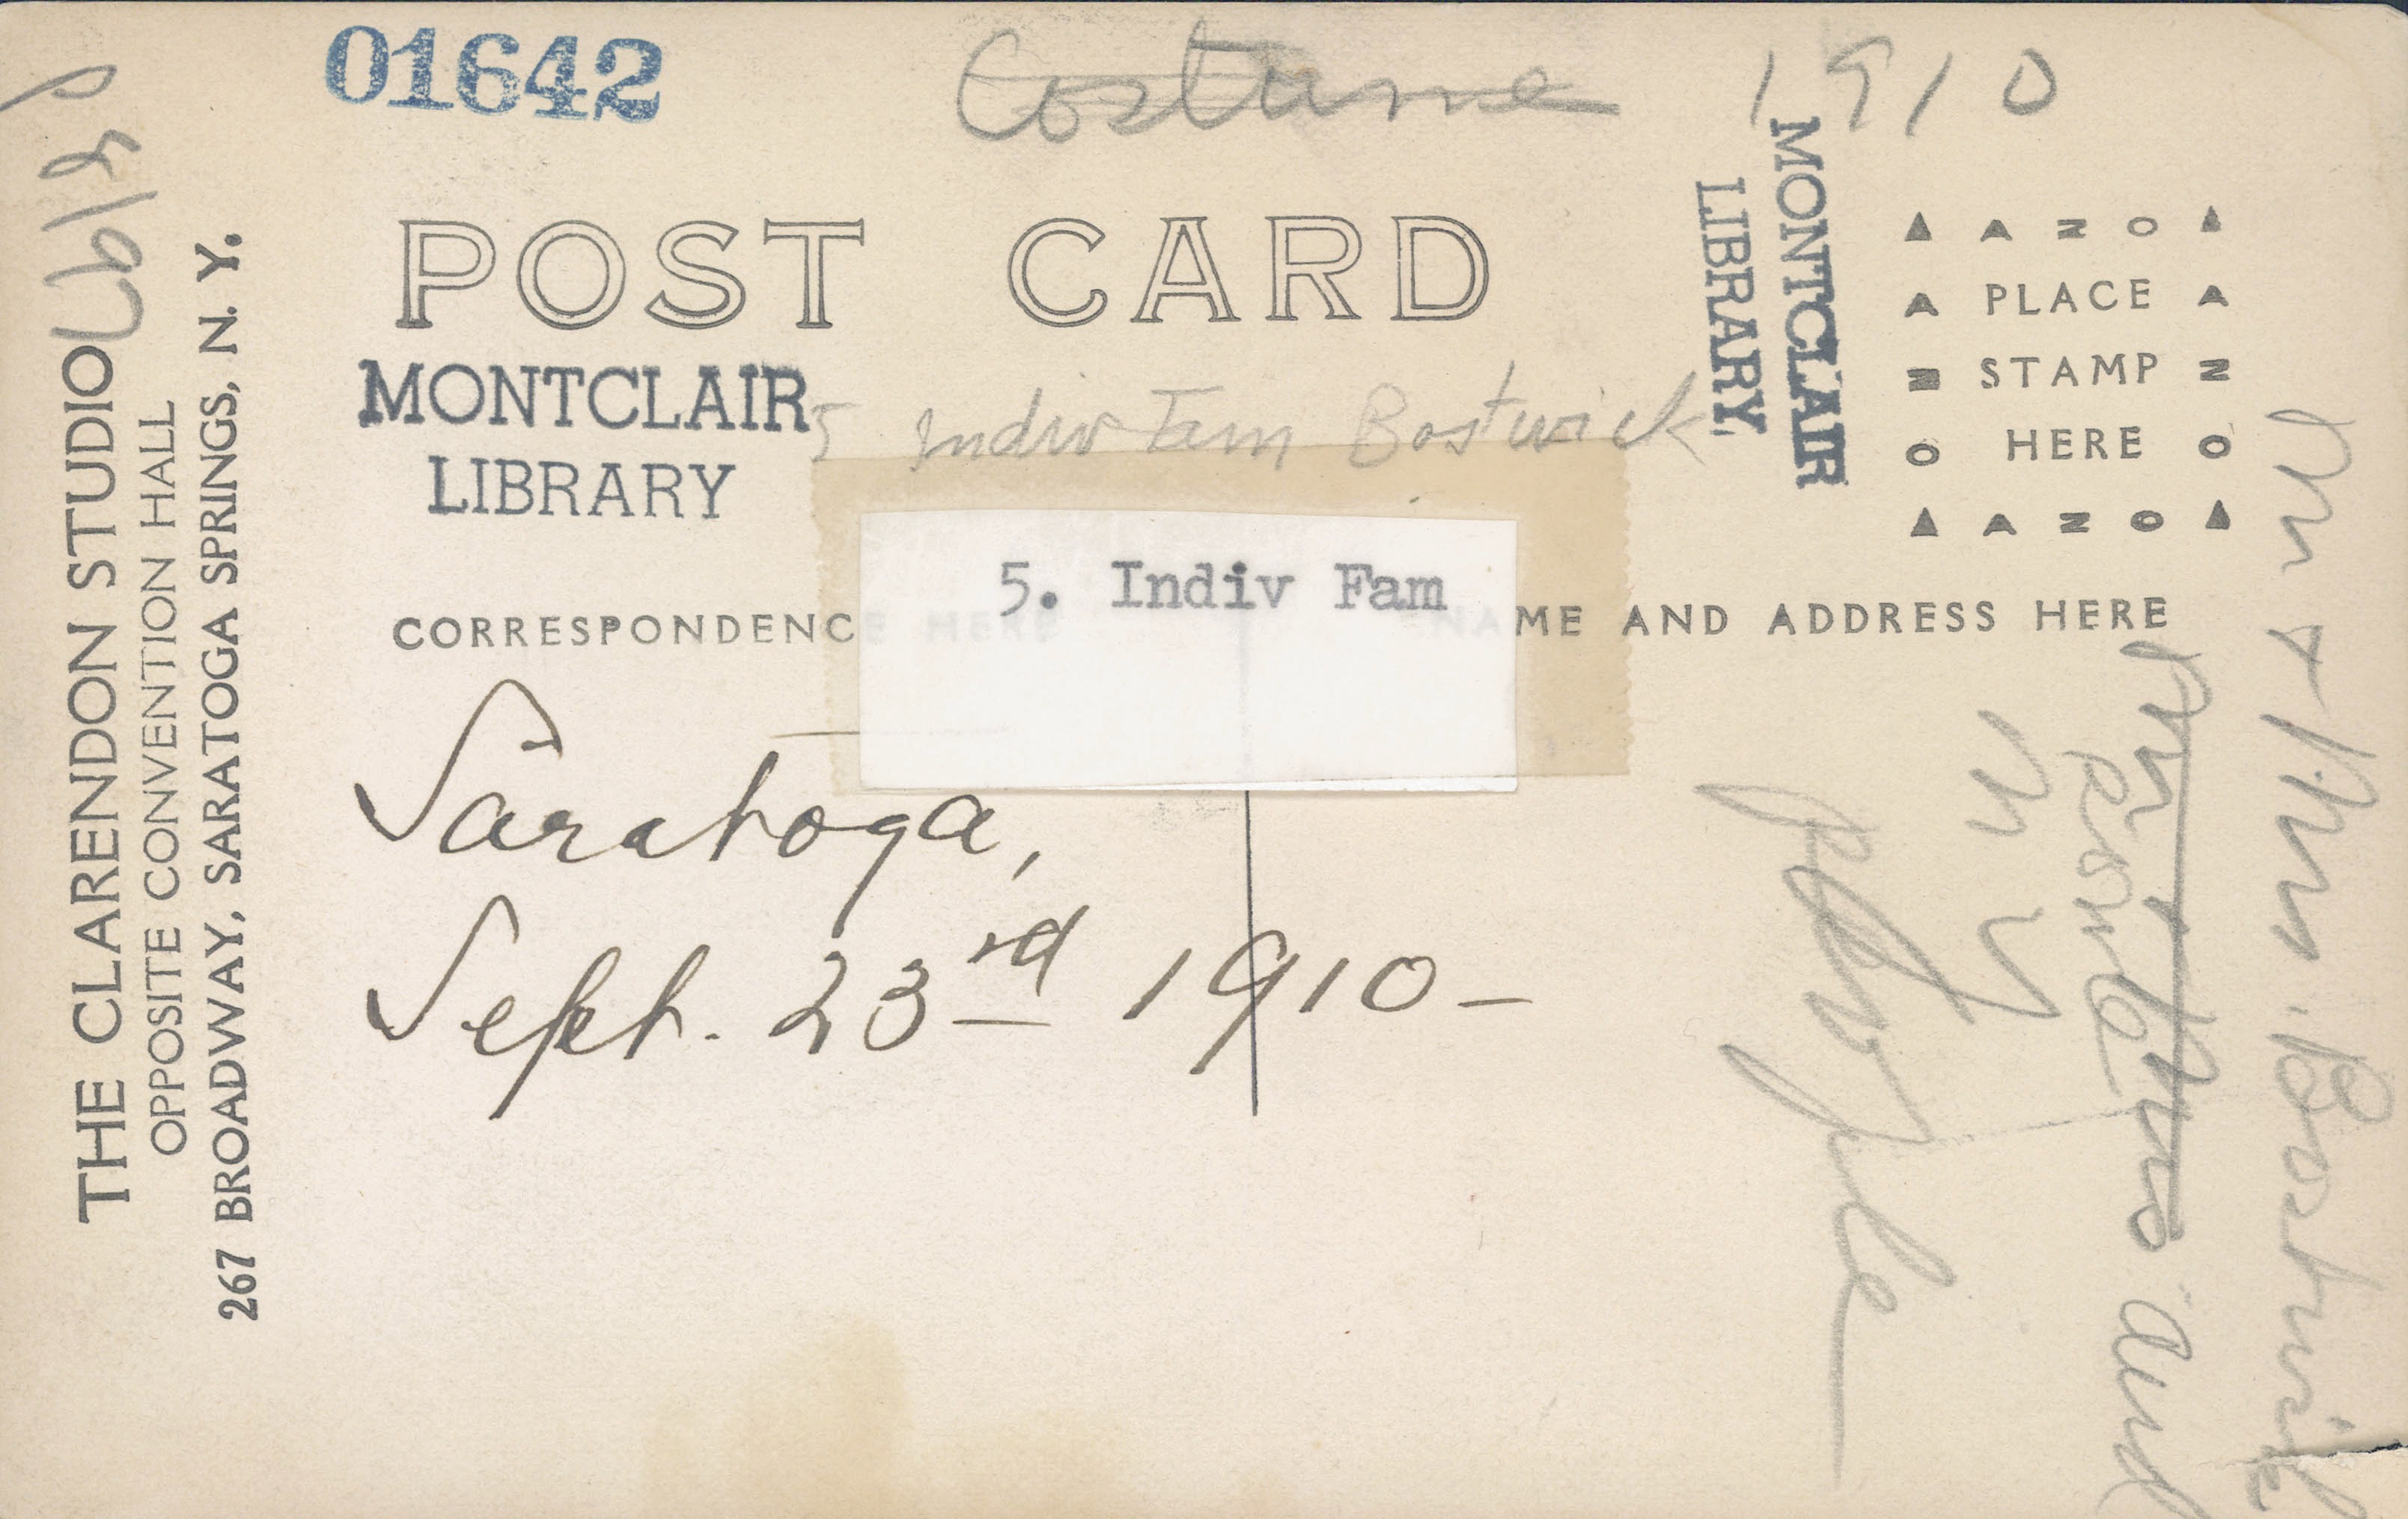 01642
Costume 1910
POST CARD
MONTCLAIR
LIBRARY
MONTCLAIR
LIBRARY
5 Indiv Fam Bostwick
AZO
PLACE
STAMP
HERE
AZO
5. Indiv Fam
CORRESPONDENCE HERE
NAME AND ADDRESS HERE
Saratoga,
Sept. 23rd 1910-
THE CLARENDON STUDIO
OPPOSITE CONVENTION HALL
267 BROADWAY, SARATOGA SPRINGS, N. Y.
Mr + Mrs. Bostwick
and
N Y